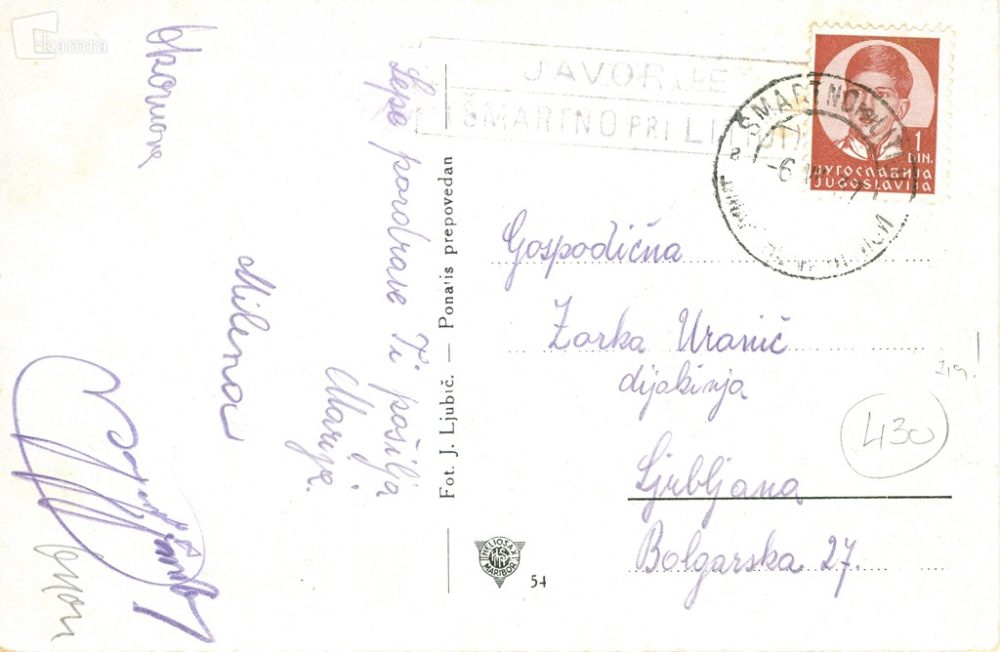 kamra
Lepe pozdrave Ti pošilja
Marija.
Milena
Fot. J. Ljubič. — Ponatis prepovedan
JAVORJE
ŠMARTNO PRI LITIJI
ŠMARTNO PRI LITIJI
1
DIN.
ЈУГОСЛАВИЈА
JUGOSLAVIJA
Gospodična
Zorka Uranič
dijakinja
Ljubljana
Bolgarska 27.
219.
430
HELIOSAX
MARIBOR
54